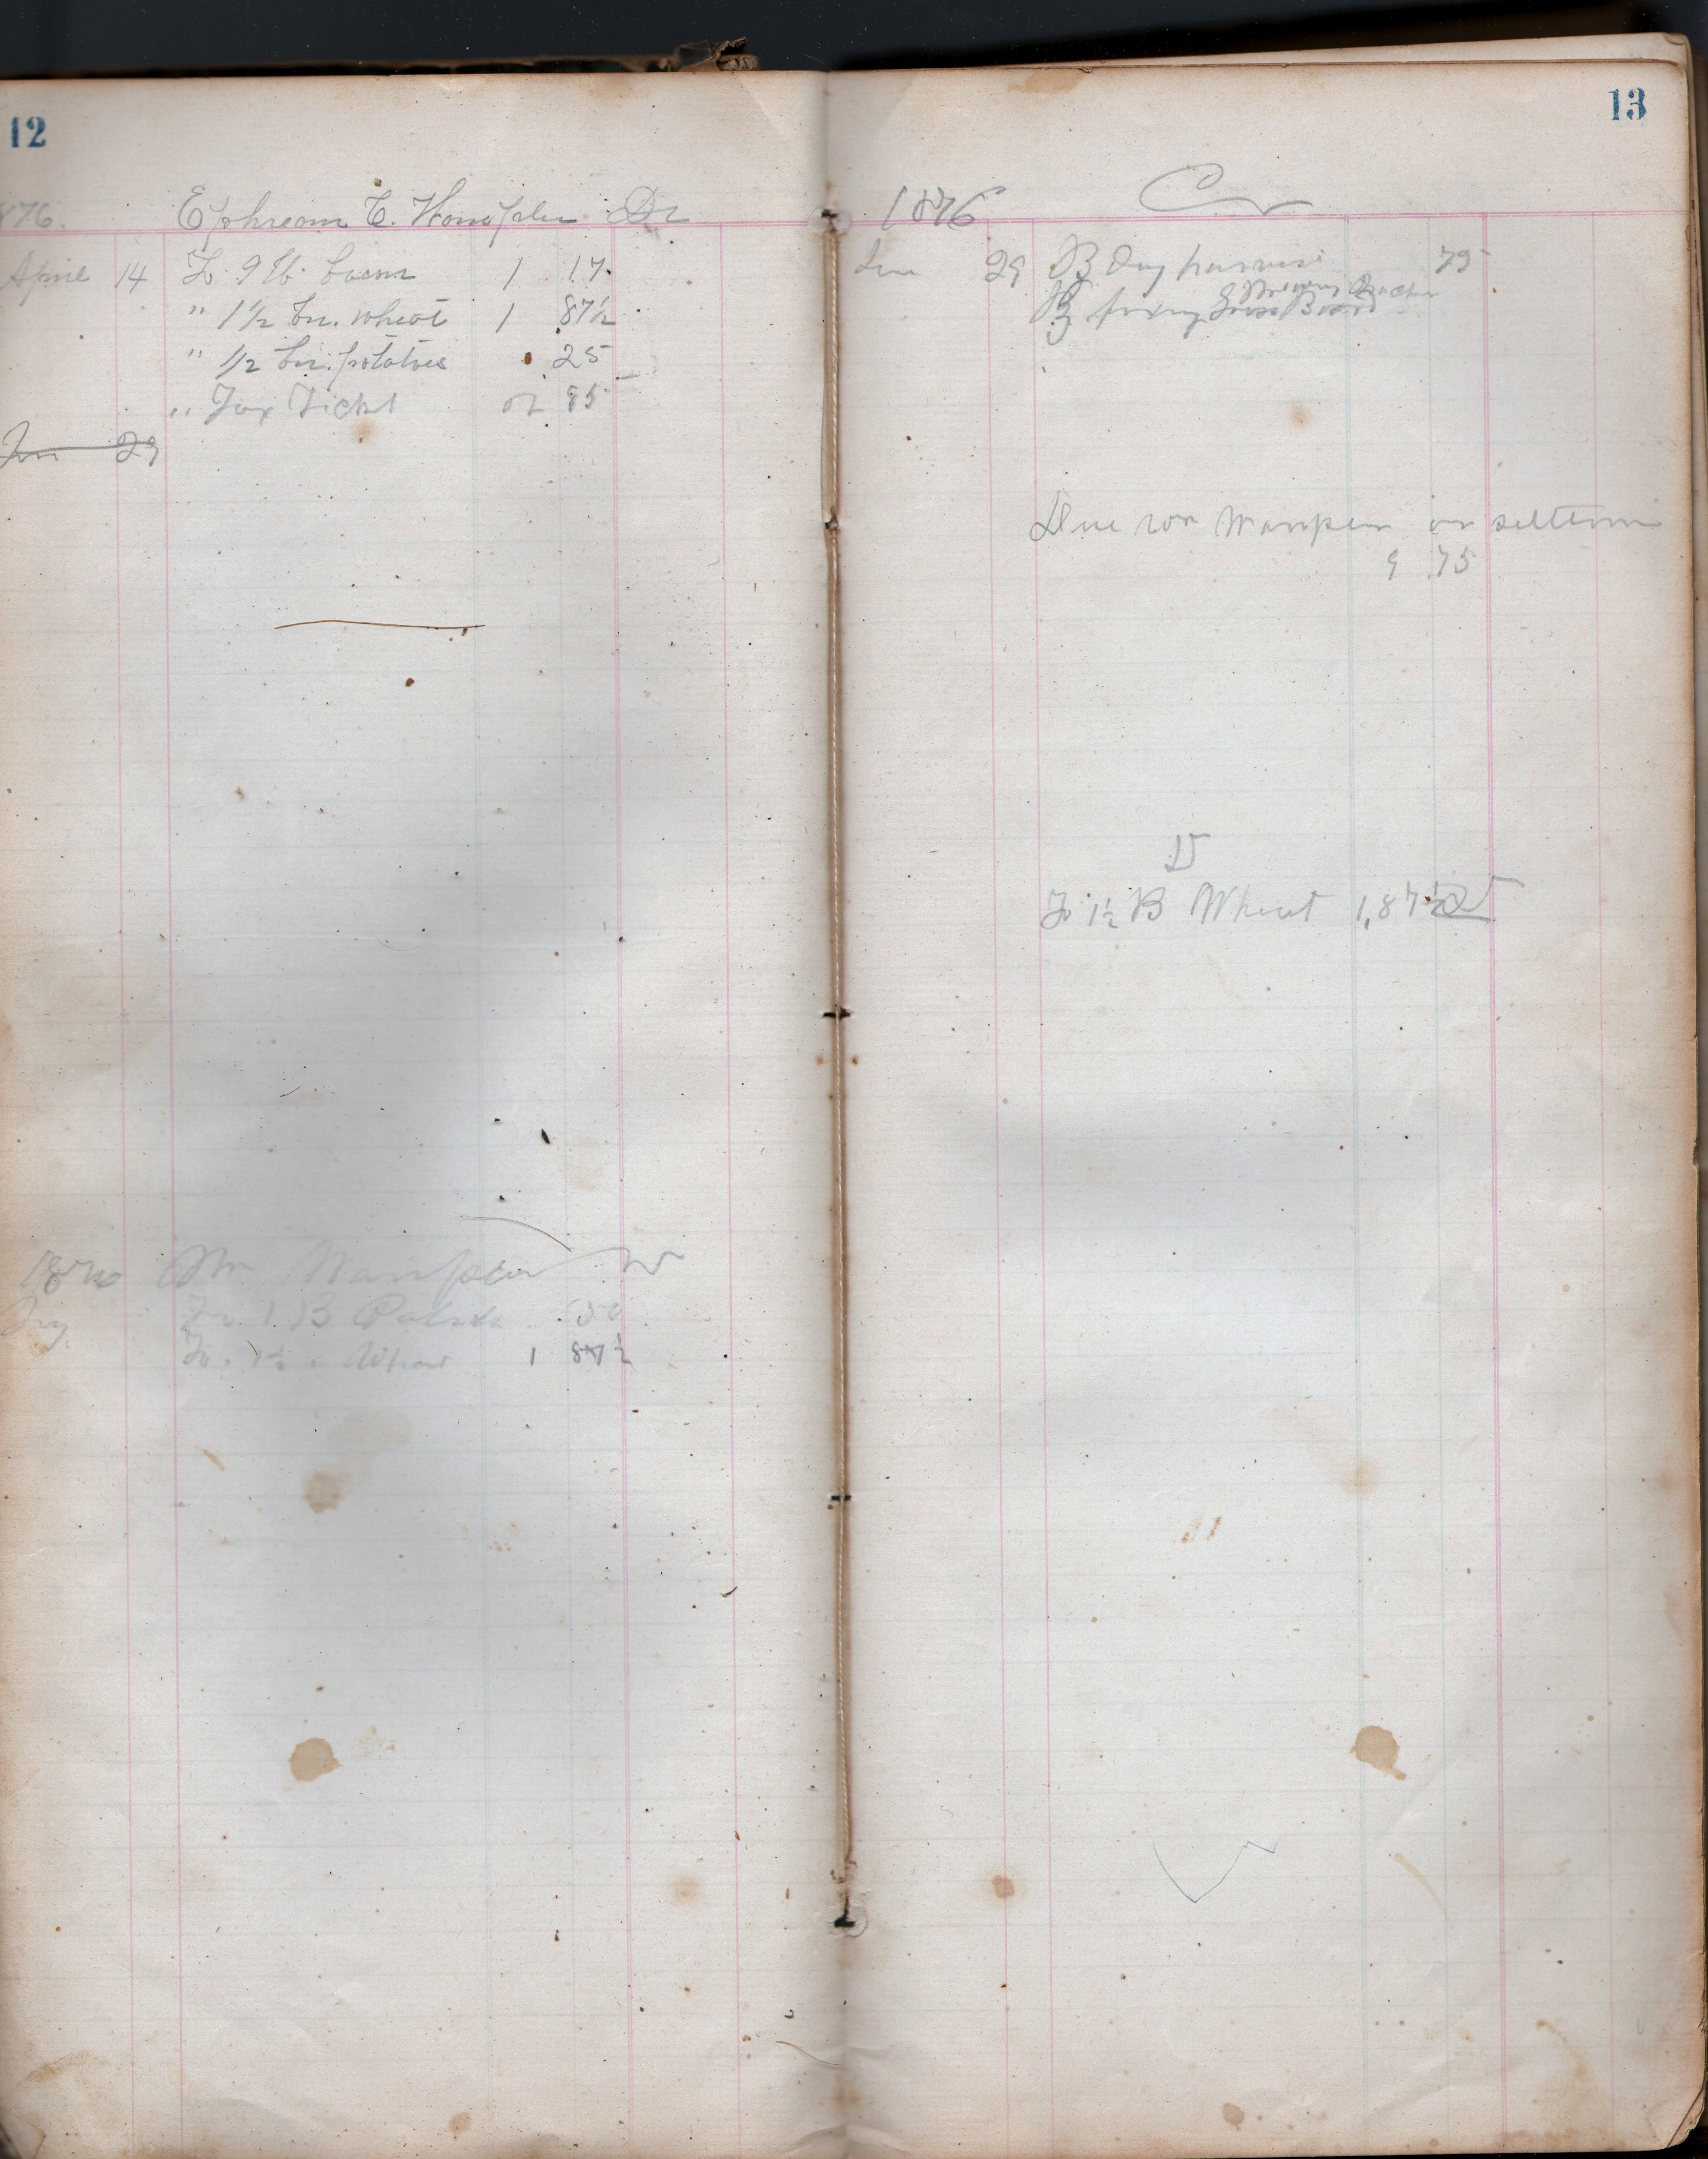 12
876. Ephream C. Dr
April 14 To 9 lb. bacon 1 17
" 1½ bu. wheat 1 87½
" ½ bu. potatoes 25
" Tax Tickt 85
Jun 29
1876 Wm Wampler
To 1 B 50
To 1½ " Wheat 1 87½
13
1876 Cr
Jun 29 B Day harvest 75
By fixing
Due Wampler on settem
9 75
15
To 1½ B Wheat 1,87½